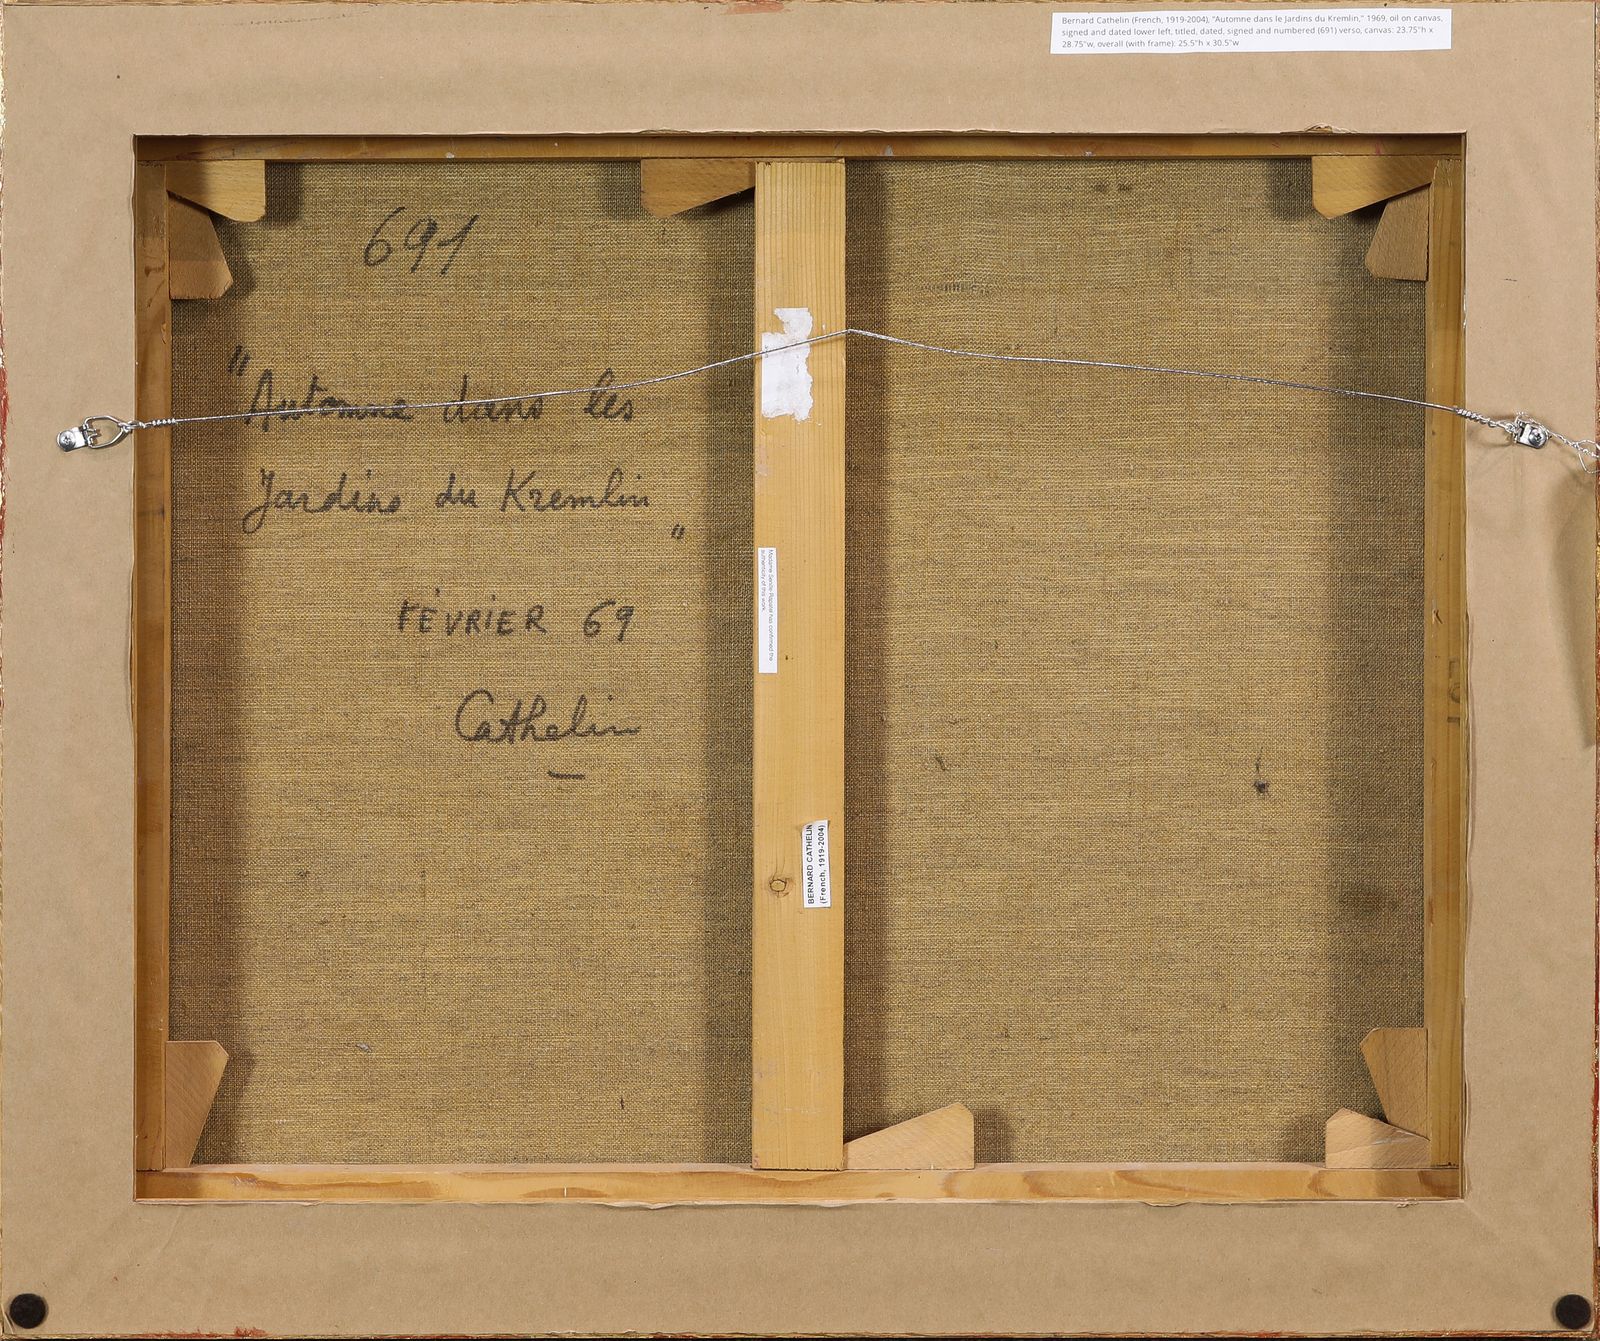 Bernard Cathelin (French, 1919-2004), "Automne dans le Jardins du Kremlin," 1969, oil on canvas,
signed and dated lower left, titled, dated, signed and numbered (691) verso, canvas: 23.75"h x
28.75"w, overall (with frame): 25.5"h x 30.5"w
691
"Automne dans les
Jardins du Kremlin"
FÉVRIER 69
Cathelin
Madame has confirmed the
authenticity of this work.
BERNARD CATHELIN
(French, 1919-2004)